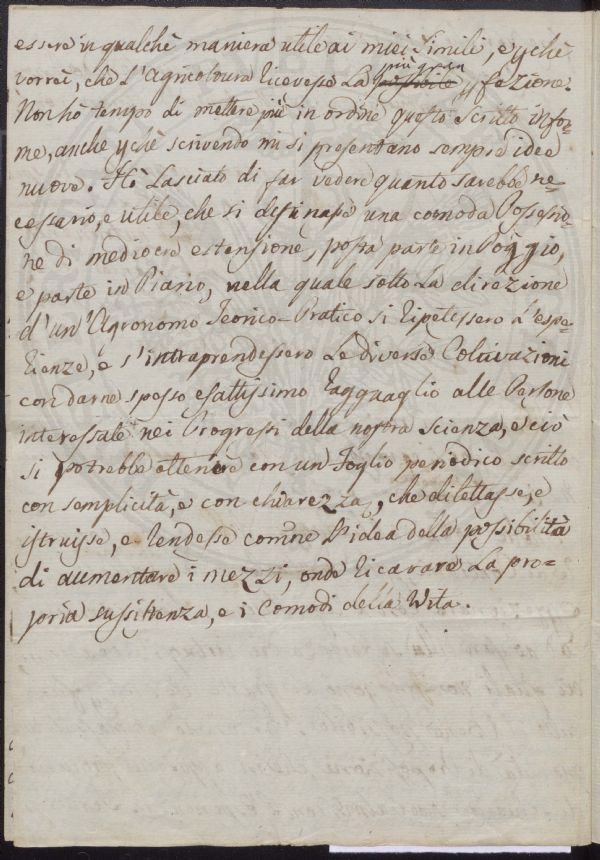 essere in qualchè maniera utile ai miei Simili, e pchè
vorrei, chè l'Agricoltura ricevesse la più gran pfezione.
Non hò tempo di mettere più in ordine questo Scritto infor-
me, anche pchè scrivendo mi si presentano sempre idee
nuove. Hò lasciato di far vedere quanto sarebbe ne-
cessario, e utile, che si destinasse una comoda Possessio-
ne di mediocre estensione, posta parte in Poggio,
e parte in Piano, nella quale sotto la direzione
d'un'Agronomo Teorico-Pratico si ripetessero l'espe-
rienze, e s'intraprendessero le diverse Coltivazioni
con darne spesso esattissimo ragguaglio alle Persone
interessate nei Progressi della nostra scienza, e ciò
si potrebbe ottenere con un Foglio periodico scritto
con semplicità, e con chiarezza, che dilettasse, e
istruisse, e rendesse comune l'idea della possibilità
di aumentare i mezzi, onde ricavare la pro-
pria sussistenza, e i Comodi della Vita.